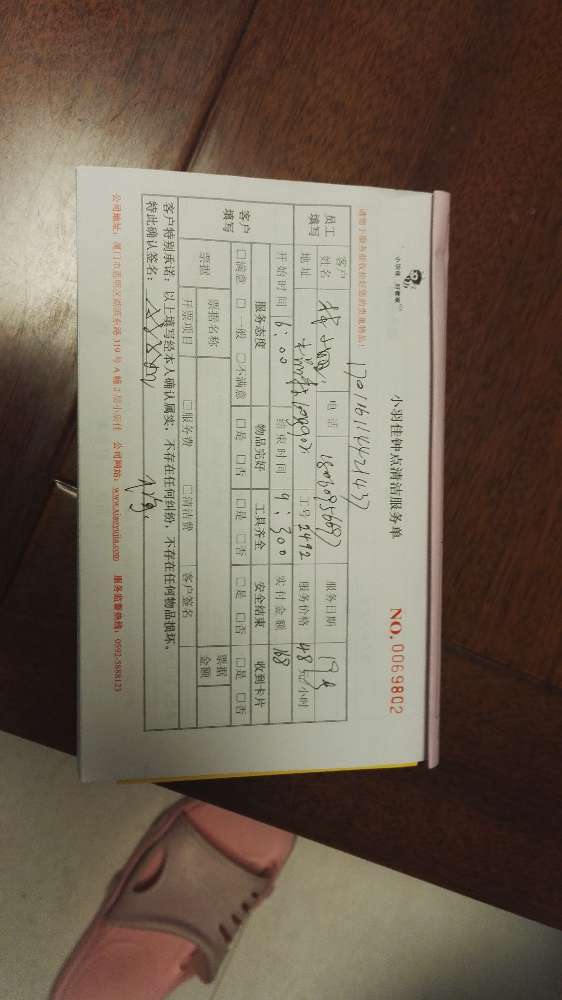 小羽佳 好管家
小羽佳钟点清洁服务单
NO. 0069802
请您于服务前收拾好您的贵重物品!
员工填写 客户姓名 电话 服务日期 19号
地址 工号 2492 服务价格 48元/小时
开始时间 6:00 结束时间 9:30 实付金额 168
客户填写 服务态度 物品完好 工具齐全 安全结束 收到卡片
□满意 □一般 □不满意 □是 □否 □是 □否 □是 □否 □是 □否
票据 票据名称 票据金额
开票项目 □服务费 □清洁费 客户签名
客户特别承诺:以上填写经本人确认属实,不存在任何纠纷,不存在任何物品损坏。
特此确认签名:
公司地址:厦门市思明区湖滨东路319号A幢2层小羽佳 公司网站:www.xiaoyujia.com 服务监督热线:0592-5888123